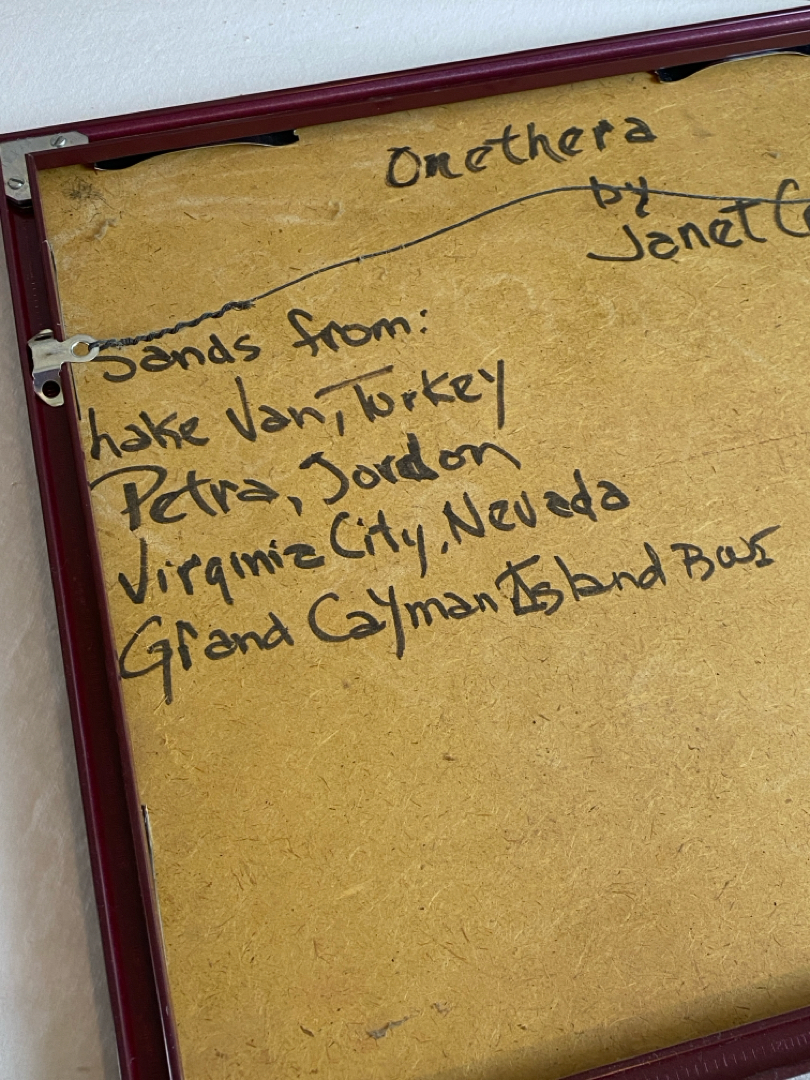 Onethera
by
Janet
Sands from:
Lake Van, Turkey
Petra, Jordon
Virginia City, Nevada
Grand Cayman Island